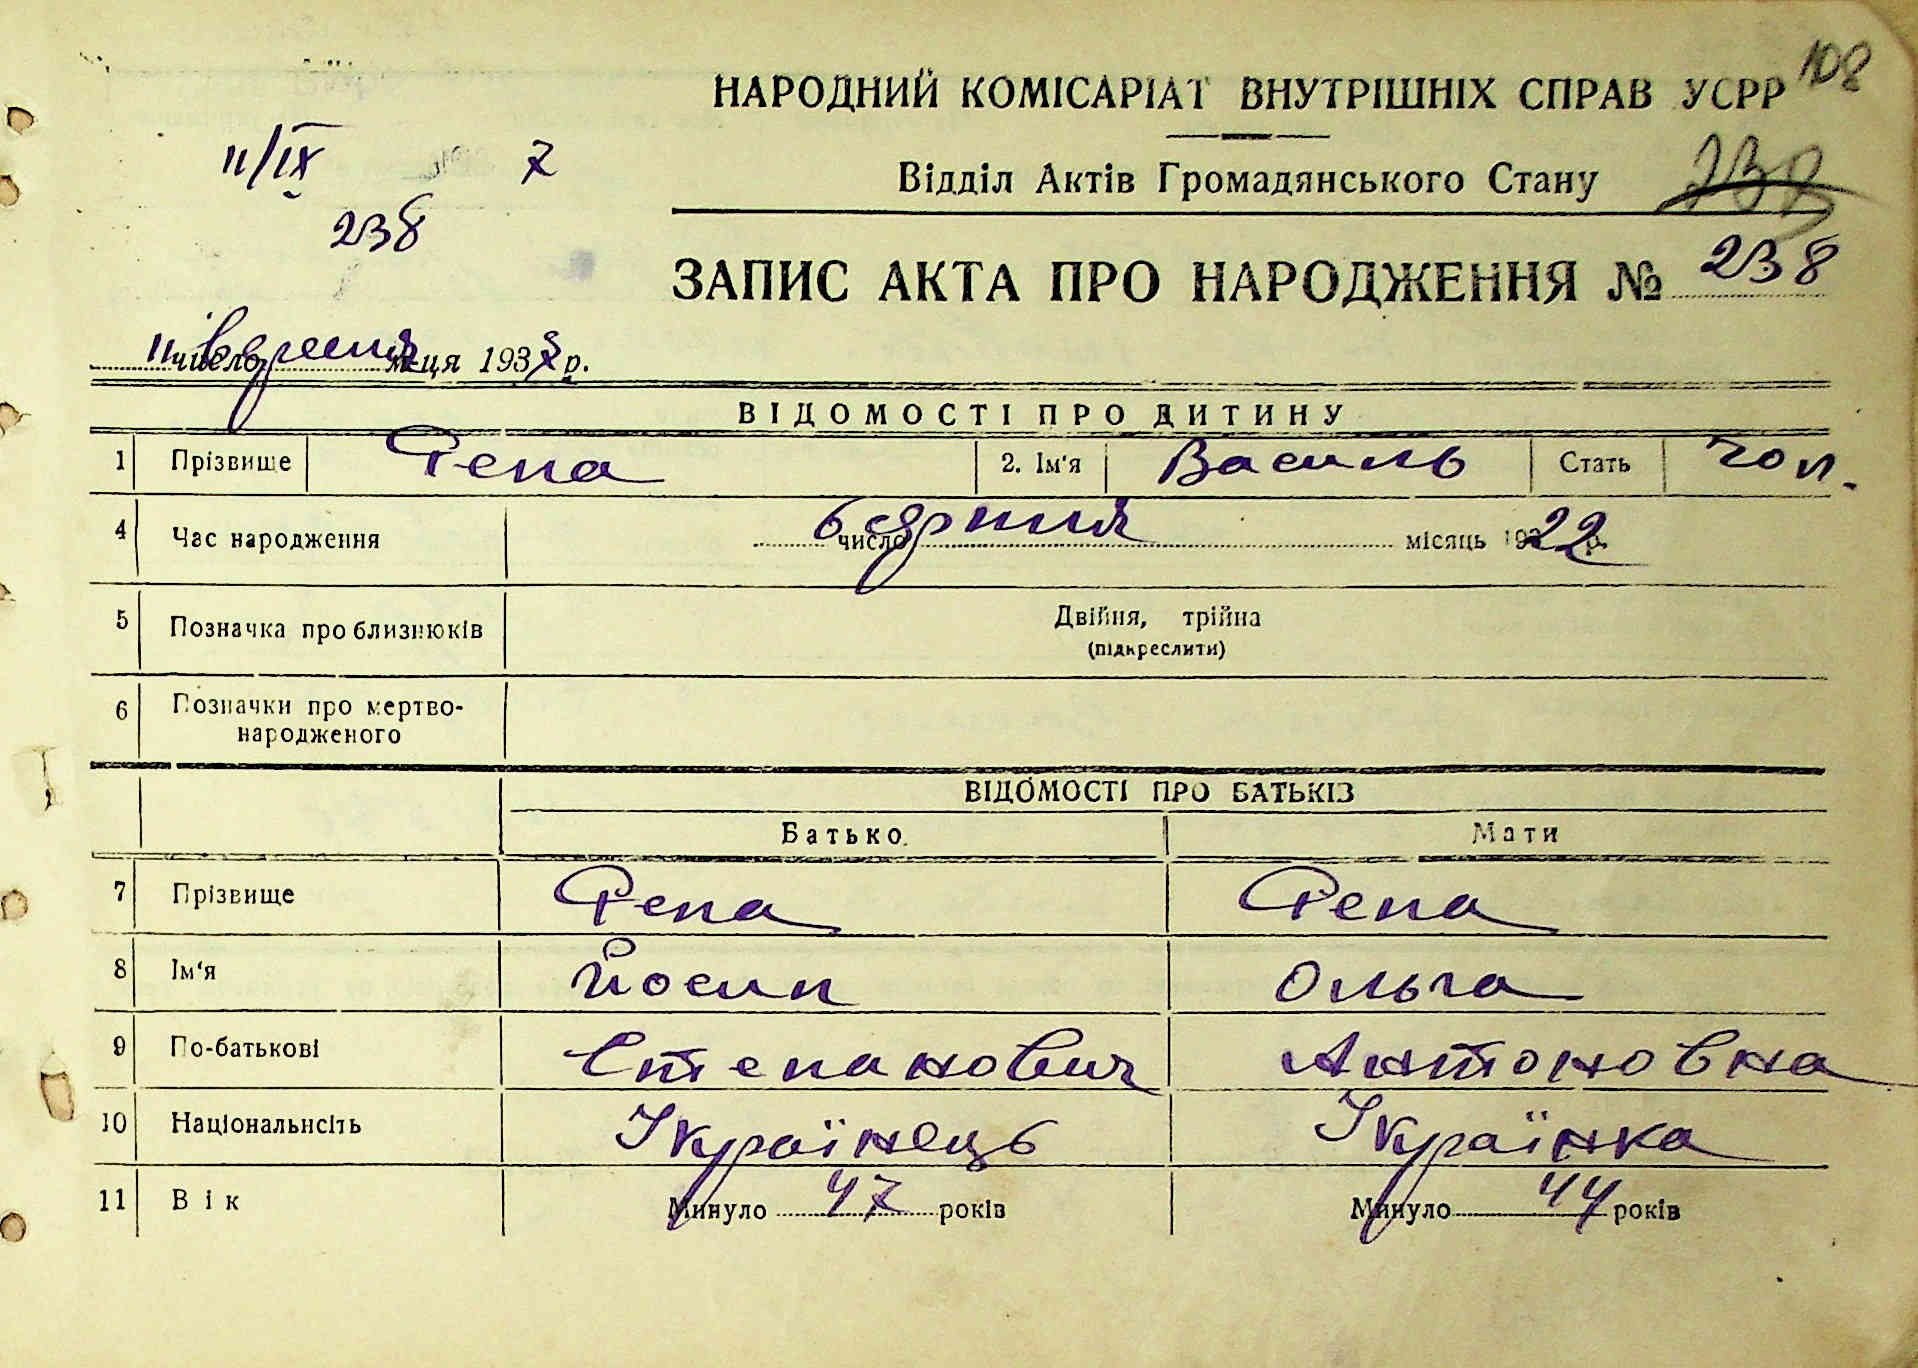 108
НАРОДНИЙ КОМІСАРІАТ ВНУТРІШНІХ СПРАВ УСРР
11/IX 7
Відділ Актів Громадянського Стану 238
238
ЗАПИС АКТА ПРО НАРОДЖЕННЯ № 238
11 число вересня м-ця 1937 р.
ВІДОМОСТІ ПРО ДИТИНУ
1 Прізвище Репа 2. Ім'я Василь Стать чол.
4 Час народження 6 число серпня місяць 1922 р.
5 Позначка про близнюків Двійня, трійна
(підкреслити)
6 Позначки про мертво-
народженого
ВІДОМОСТІ ПРО БАТЬКІВ
Батько Мати
7 Прізвище Репа Репа
8 Ім'я Йосип Ольга
9 По-батькові Степанович Антоновна
10 Національнсіть Українець Українка
11 Вік Минуло 47 років Минуло 44 років